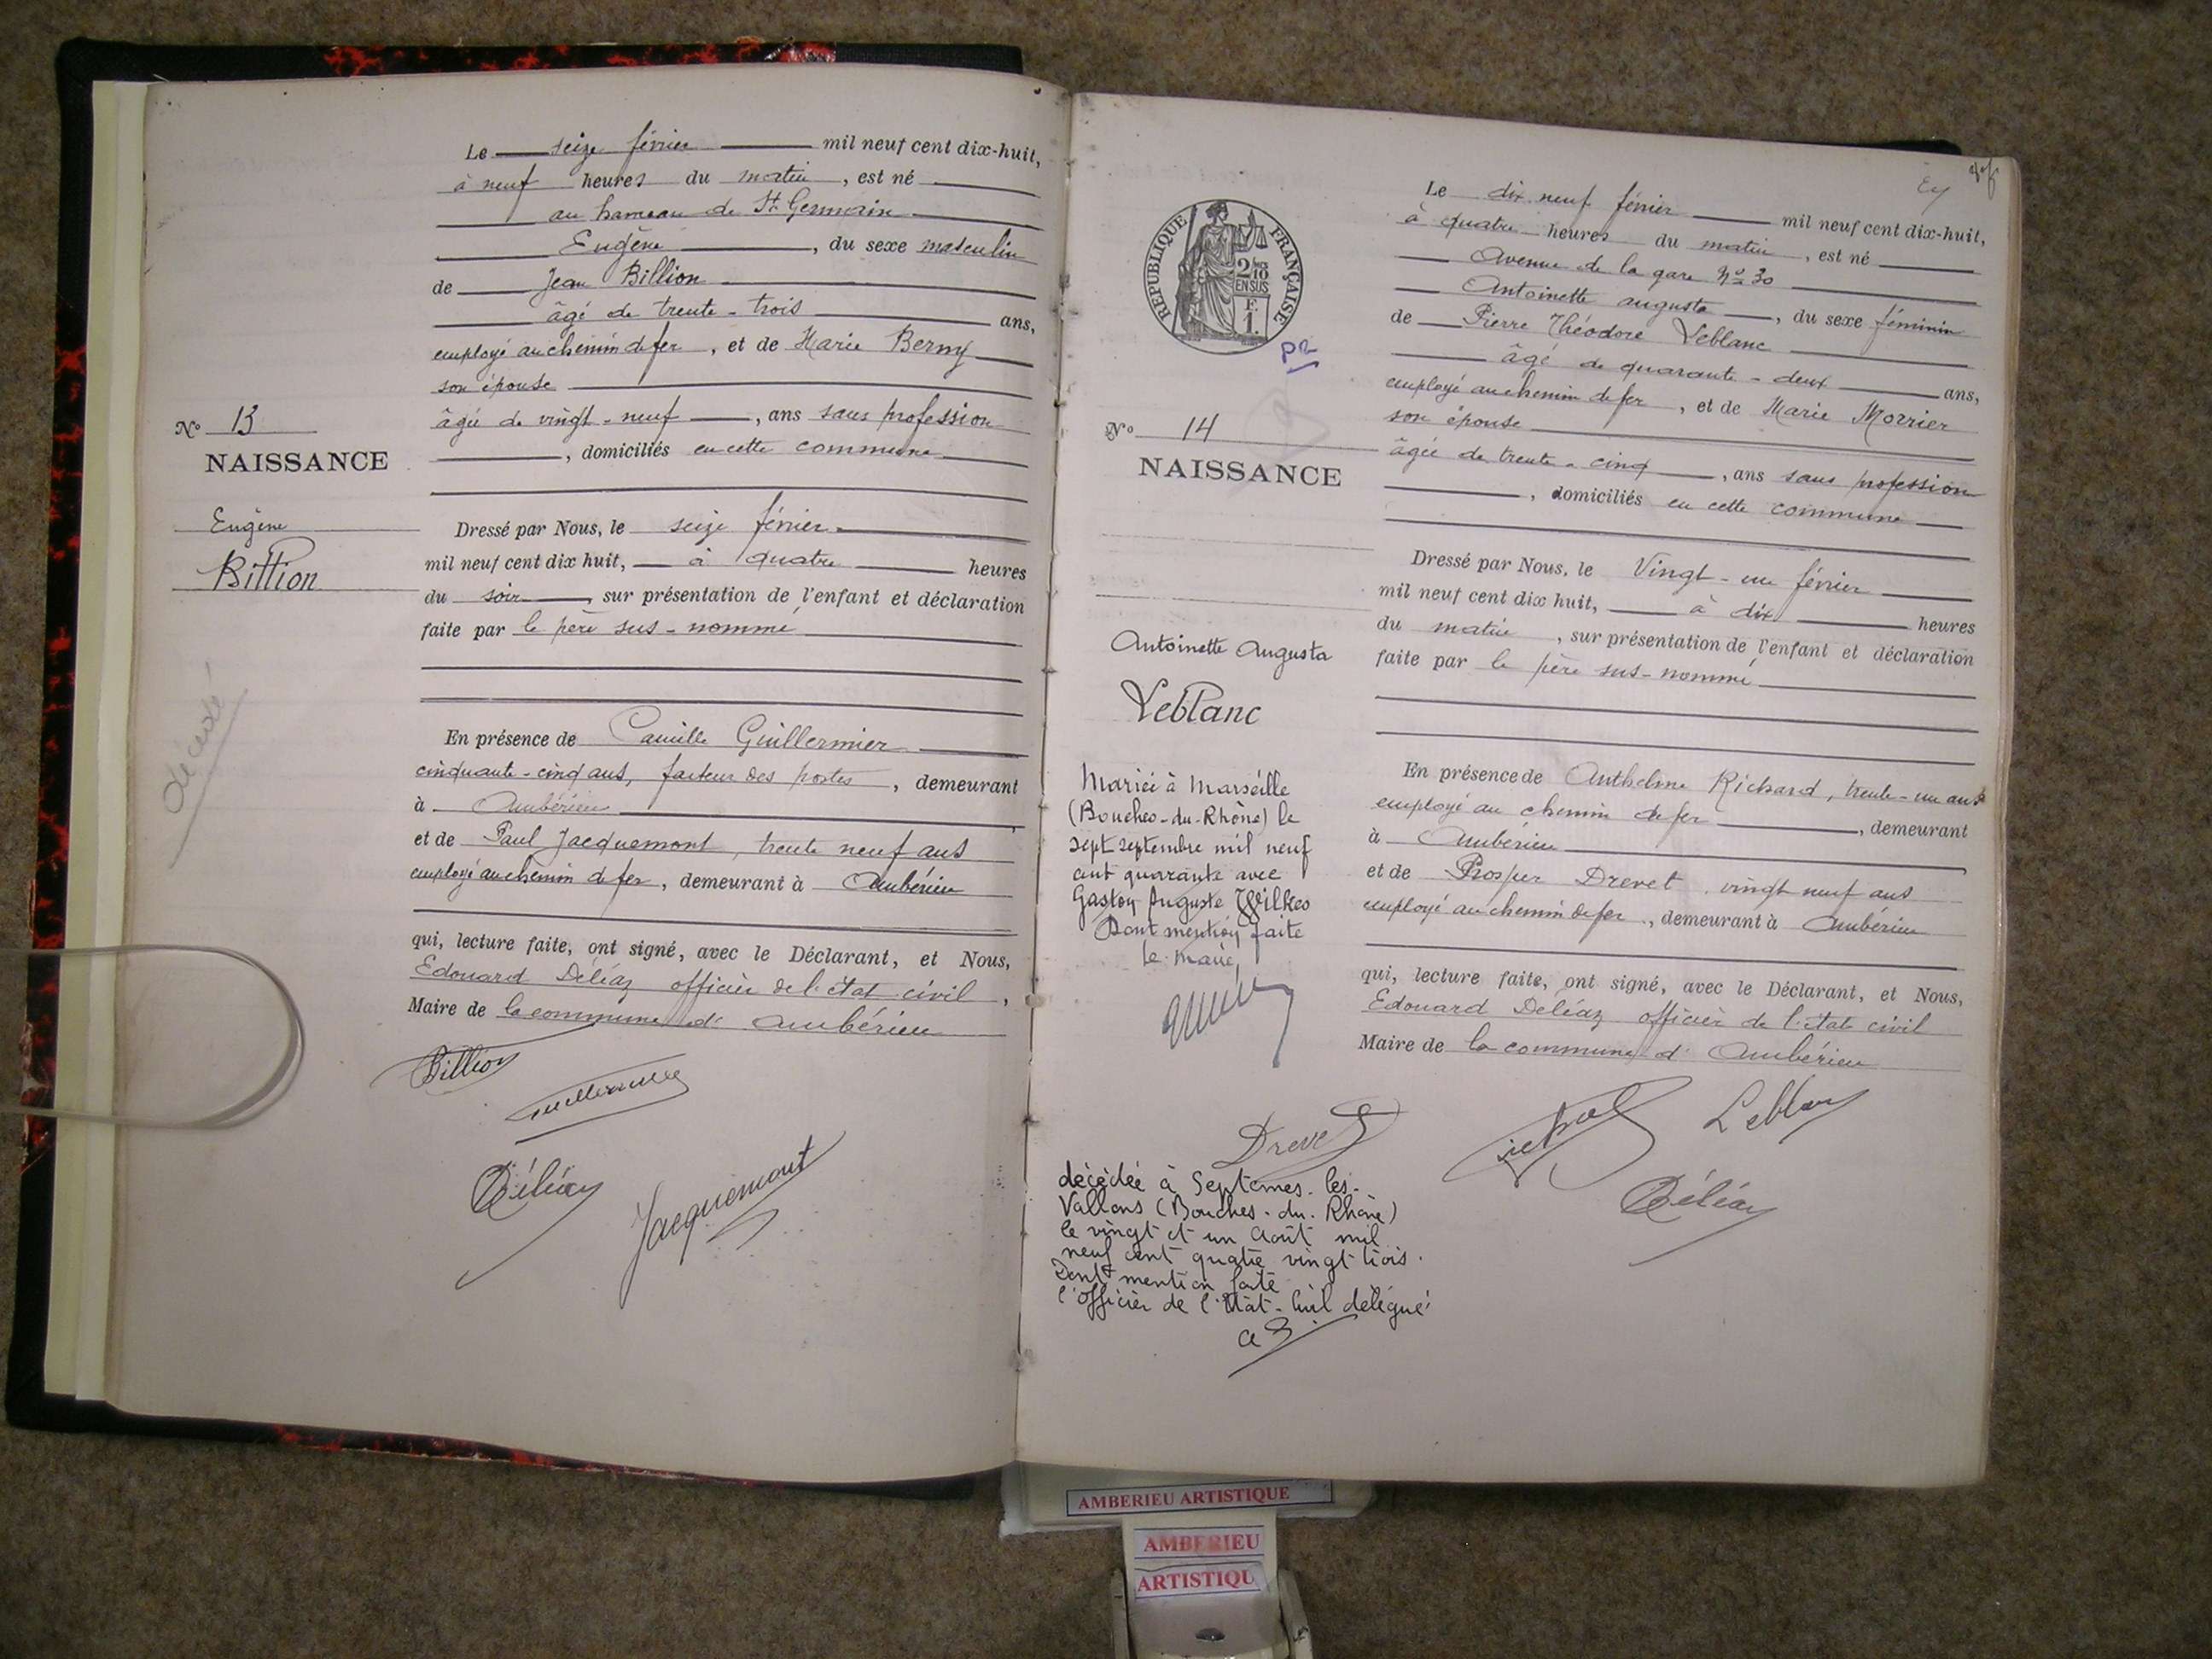 Le seize février mil neuf cent dix-huit,
à neuf heures du matin, est né
au hameau de St Germain
Eugène, du sexe masculin
de Jean Billion
âgé de trente-trois ans,
employé au chemin de fer, et de Marie Berny
son épouse
âgée de vingt-neuf, ans sans profession
, domiciliés en cette commune
N° 13
NAISSANCE
Eugène
Billion
décédé
Dressé par Nous, le seize février
mil neuf cent dix huit, à quatre heures
du soir, sur présentation de l'enfant et déclaration
faite par le père sus-nommé
En présence de Camille Guillermier
cinquante-cinq ans, facteur des postes, demeurant
à Ambérieu
et de Paul Jacquemont, trente neuf ans
employé au chemin de fer, demeurant à Ambérieu
qui, lecture faite, ont signé, avec le Déclarant, et Nous,
Edouard Déléaz officier de l'état civil,
Maire de la commune d'Ambérieu
Billion
Guillermier
Déléaz
Jacquemont
REPUBLIQUE FRANÇAISE
2/10
EN SUS
F.
1.
N° 14
NAISSANCE
Antoinette Augusta
Leblanc
Mariée à Marseille
(Bouches-du-Rhône) le
sept septembre mil neuf
cent quarante avec
Gaston Auguste Wilkes
Dont mention faite
le maire,
Le dix neuf février mil neuf cent dix-huit,
à quatre heures du matin, est né
Avenue de la gare N° 30
Antoinette augusta, du sexe féminin
de Pierre Théodore Leblanc
âgé de quarante-deux ans,
employé au chemin de fer, et de Marie Morrier
son épouse
âgée de trente-cinq, ans sans profession
, domiciliés en cette commune
Dressé par Nous, le Vingt-un février
mil neuf cent dix huit, à dix heures
du matin, sur présentation de l'enfant et déclaration
faite par le père sus-nommé
En présence de Anthelme Richard, trente-un ans
employé au chemin de fer, demeurant
à Ambérieu
et de Prosper Drevet vingt neuf ans
employé au chemin de fer, demeurant à Ambérieu
qui, lecture faite, ont signé, avec le Déclarant, et Nous,
Edouard Deléaz officier de l'état civil
Maire de la commune d'Ambérieu
Drevet
Richard
Leblanc
Déléaz
décédée à Septèmes-les-
Vallons (Bouches-du-Rhône)
le vingt et un Août mil
neuf cent quatre vingt trois.
Dont mention faite
l'officier de l'état-Civil délégué
AMBERIEU ARTISTIQUE
AMBERIEU
ARTISTIQU